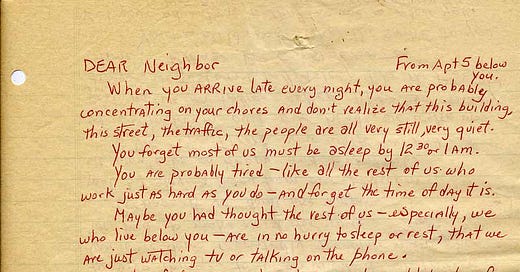 DEAR Neighbor From Apt 5 below you.
When you ARRIVE late every night, you are probably
concentrating on your chores and don't realize that this building,
this street, the traffic, the people are all very still, very quiet.
You forget most of us must be asleep by 12 30 or 1 am.
You are probably tired – like all the rest of us who
work just as hard as you do – and forget the time of day it is.
Maybe you had thought the rest of us – especially, we
who live below you – are in no hurry to sleep or rest, that we
are just watching tv or talking on the phone.